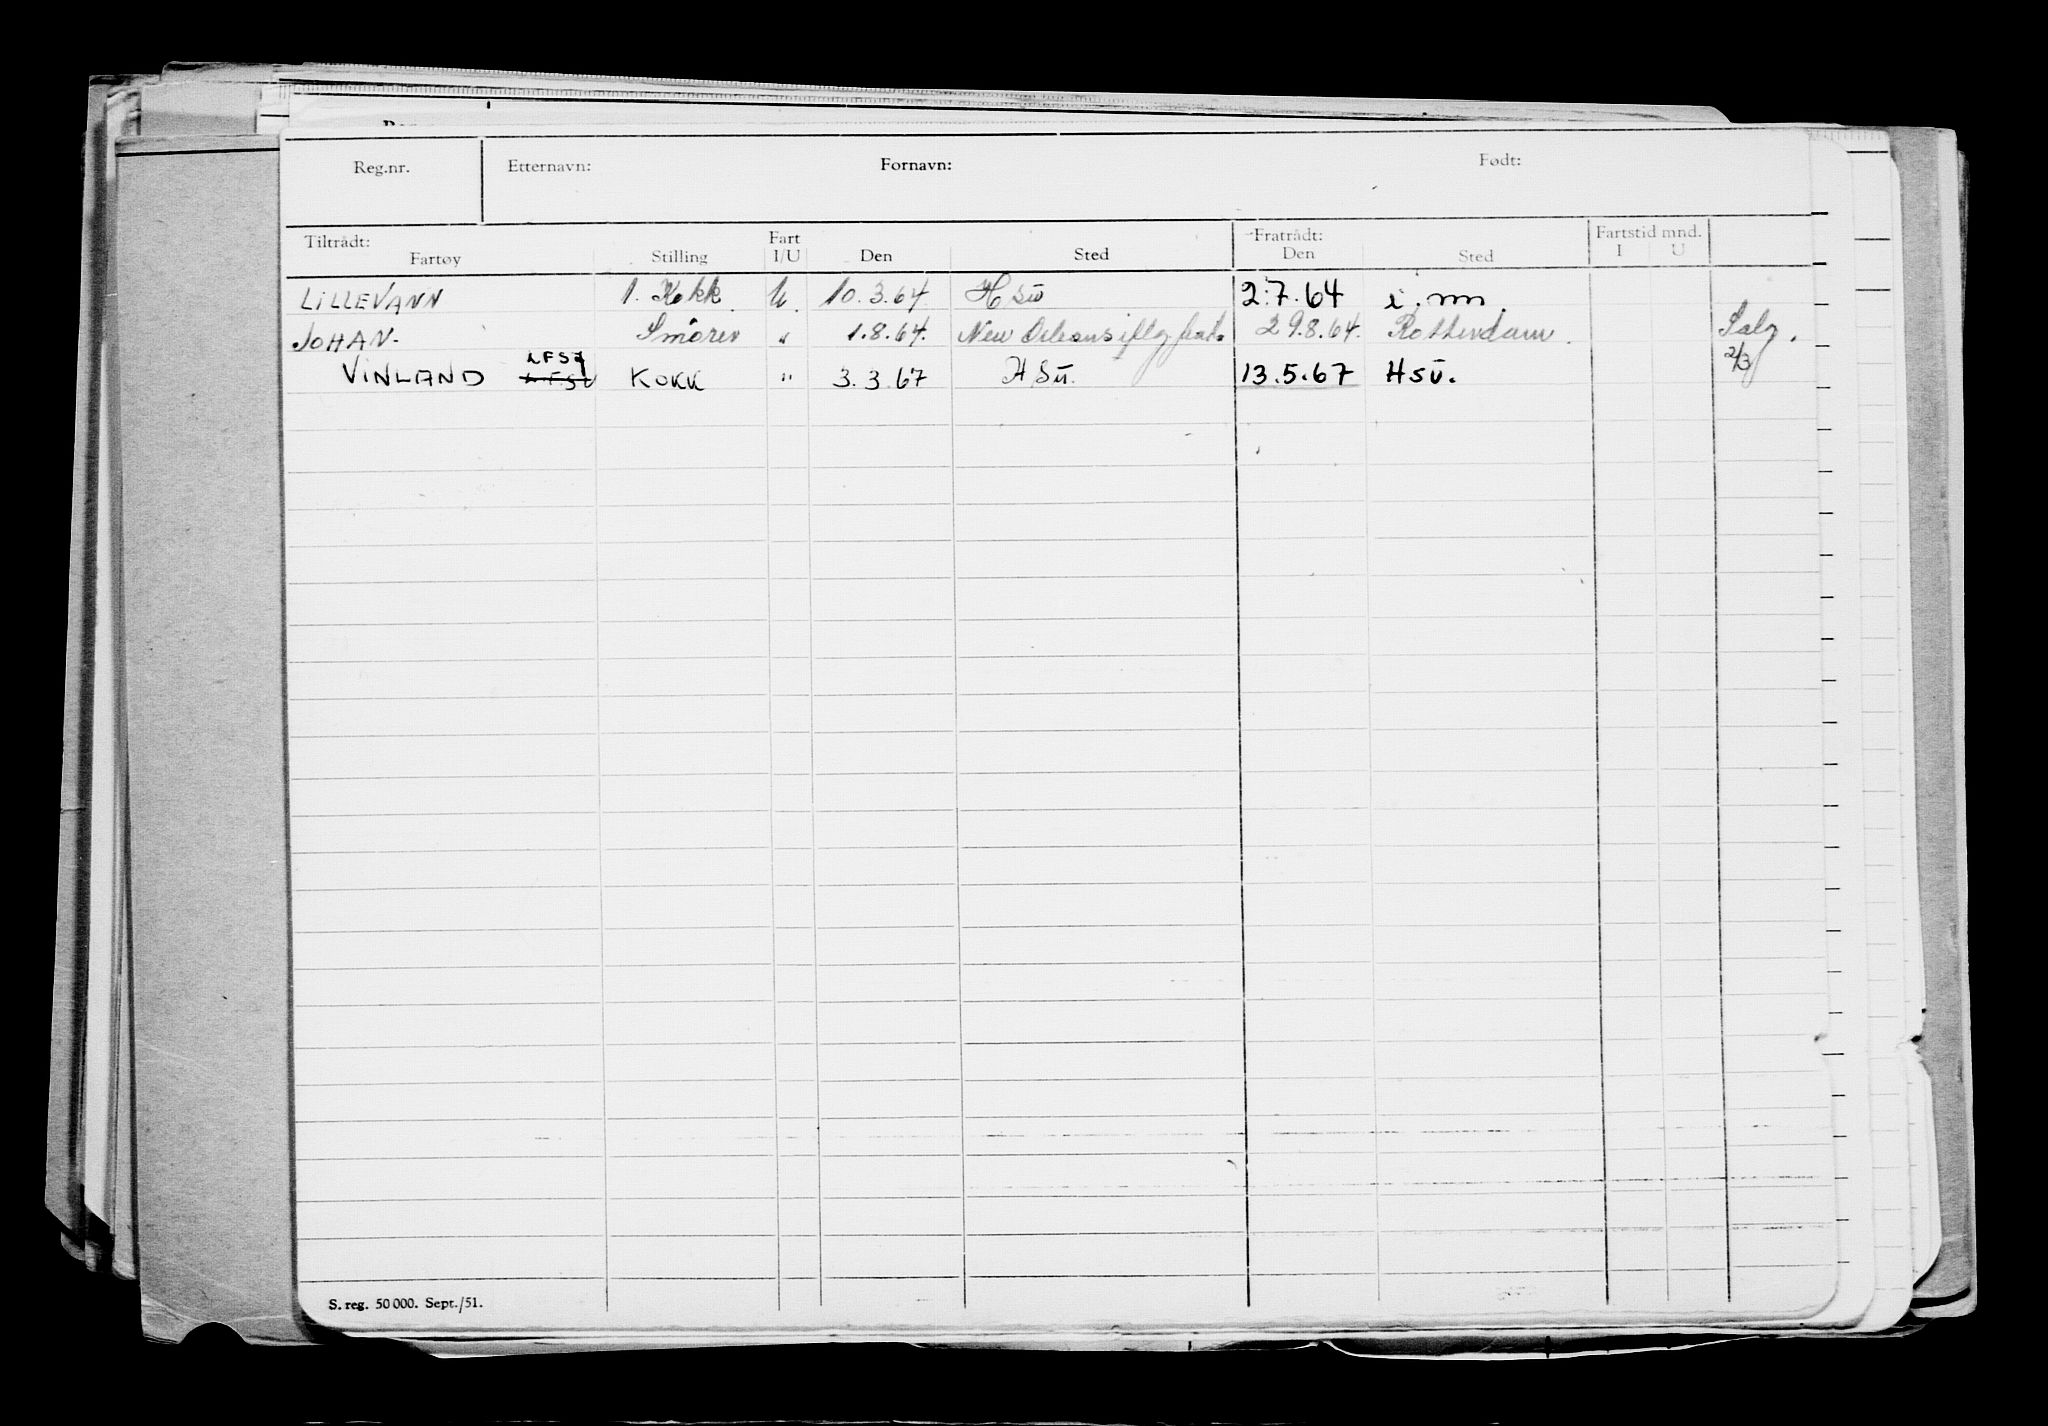 Reg.nr. Etternavn: Fornavn: Født:
Tiltrådt: Fart Fratrådt: Fartstid mnd.
Fartøy Stilling I/U Den Sted Den Sted I U
LILLEVANN 1. Kokk. U. 10.3.64. HSü 2.7.64 i.m.
JOHAN. Smører " 1.8.64. New Orleans 29.8.64. Rotterdam. Salg.
VINLAND LFSZ KOKK " 3.3.67 HSü. 13.5.67 HSü. 2/3
S. reg. 50 000. Sept./51.